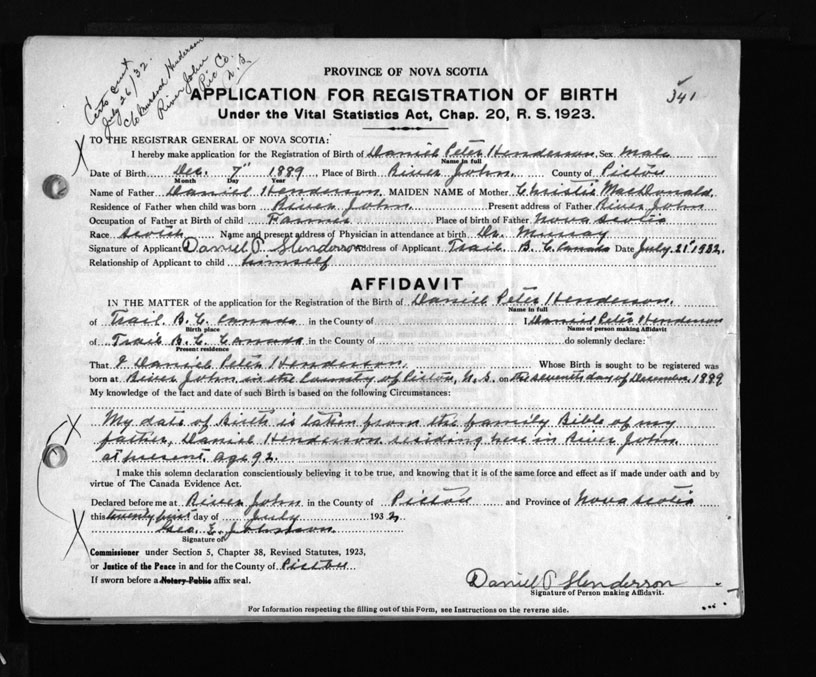 Certs sent
July 26/32.
c/o Burdock Henderson
River John
Pic Co.
N.S.
341
PROVINCE OF NOVA SCOTIA
APPLICATION FOR REGISTRATION OF BIRTH
Under the Vital Statistics Act, Chap. 20, R. S. 1923.
TO THE REGISTRAR GENERAL OF NOVA SCOTIA:
I hereby make application for the Registration of Birth of Daniel Peter Henderson, Sex Male
Name in full
Date of Birth Dec. 7" 1889 Place of Birth River John. County of Pictou
Month Day Year
Name of Father Daniel Henderson, MAIDEN NAME of Mother Christie MacDonald
Residence of Father when child was born River John. Present address of Father River John
Occupation of Father at Birth of child Farmer Place of birth of Father Nova Scotia
Race Scotch Name and present address of Physician in attendance at birth Dr. Murray
Signature of Applicant Daniel P. Henderson Address of Applicant Trail B. C. Canada Date July 21st 1932.
Relationship of Applicant to child himself
AFFIDAVIT
IN THE MATTER of the application for the Registration of the Birth of Daniel Peter Henderson.
Name in full
of Trail. B. C. Canada in the County of I Daniel Peter Henderson
Birth place Name of person making Affidavit
of Trail B. C. Canada in the County of do solemnly declare:
Present residence
That I Daniel Peter Henderson. Whose Birth is sought to be registered was
born at River John in the County of Pictou, N. S. on the seventh day of December 1889
My knowledge of the fact and date of such Birth is based on the following Circumstances:
My date of Birth is taken from the family Bible of my
father, Daniel Henderson residing here in River John
at present age 92.
I make this solemn declaration conscientiously believing it to be true, and knowing that it is of the same force and effect as if made under oath and by
virtue of The Canada Evidence Act.
Declared before me at River John in the County of Pictou and Province of Nova Scotia
this twenty first day of July 1932
Geo. E. Johnson.
Signature of
Commissioner under Section 5, Chapter 38, Revised Statutes, 1923,
or Justice of the Peace in and for the County of Pictou
If sworn before a Notary Public affix seal.
Daniel P Henderson
Signature of Person making Affidavit.
For Information respecting the filling out of this Form, see Instructions on the reverse side.